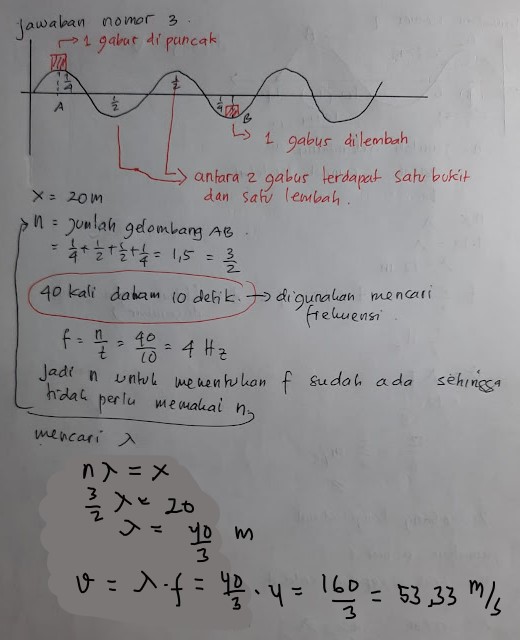 Jawaban nomor 3.
1 gabus di puncak
1/4
1/2
1/4
A
1/2
B
1 gabus dilembah
antara 2 gabus terdapat satu bukit
dan satu lembah.
x = 20m
n = jumlah gelombang AB.
= 1/4 + 1/2 + 1/2 + 1/4 = 1,5 = 3/2
40 kali dalam 10 detik. → digunakan mencari
frekuensi.
f = n/t = 40/10 = 4 Hz
Jadi n untuk menentukan f sudah ada sehingga
tidak perlu memakai n
mencari λ
nλ = x
3/2 λ = 20
λ = 40/3 m
v = λ.f = 40/3 . 4 = 160/3 = 53,33 m/s